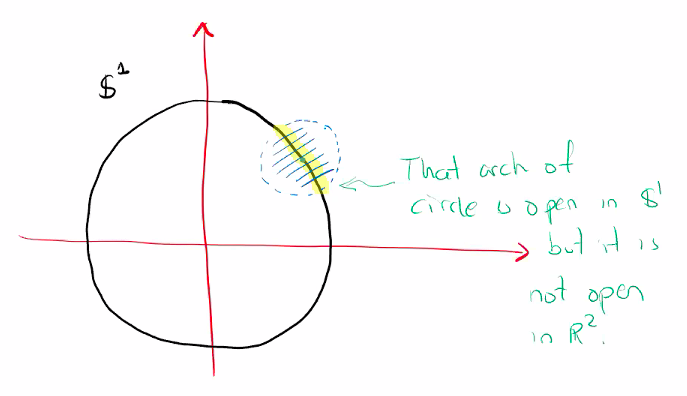 $¹
That arch of
circle is open in $¹
but it is
not open
in ℝ².